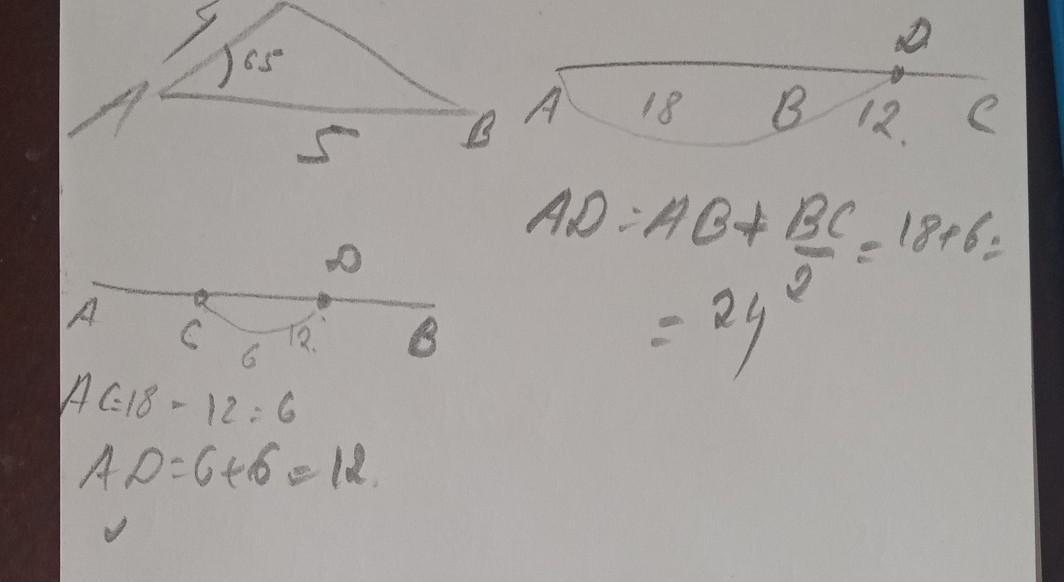 4
65
A
5
B
D
A 18 B 12. C
AD = AB + BC/2 = 18+6 =
= 24
D
A C 6 12. B
AC=18 - 12 = 6
AD=6+6=12.